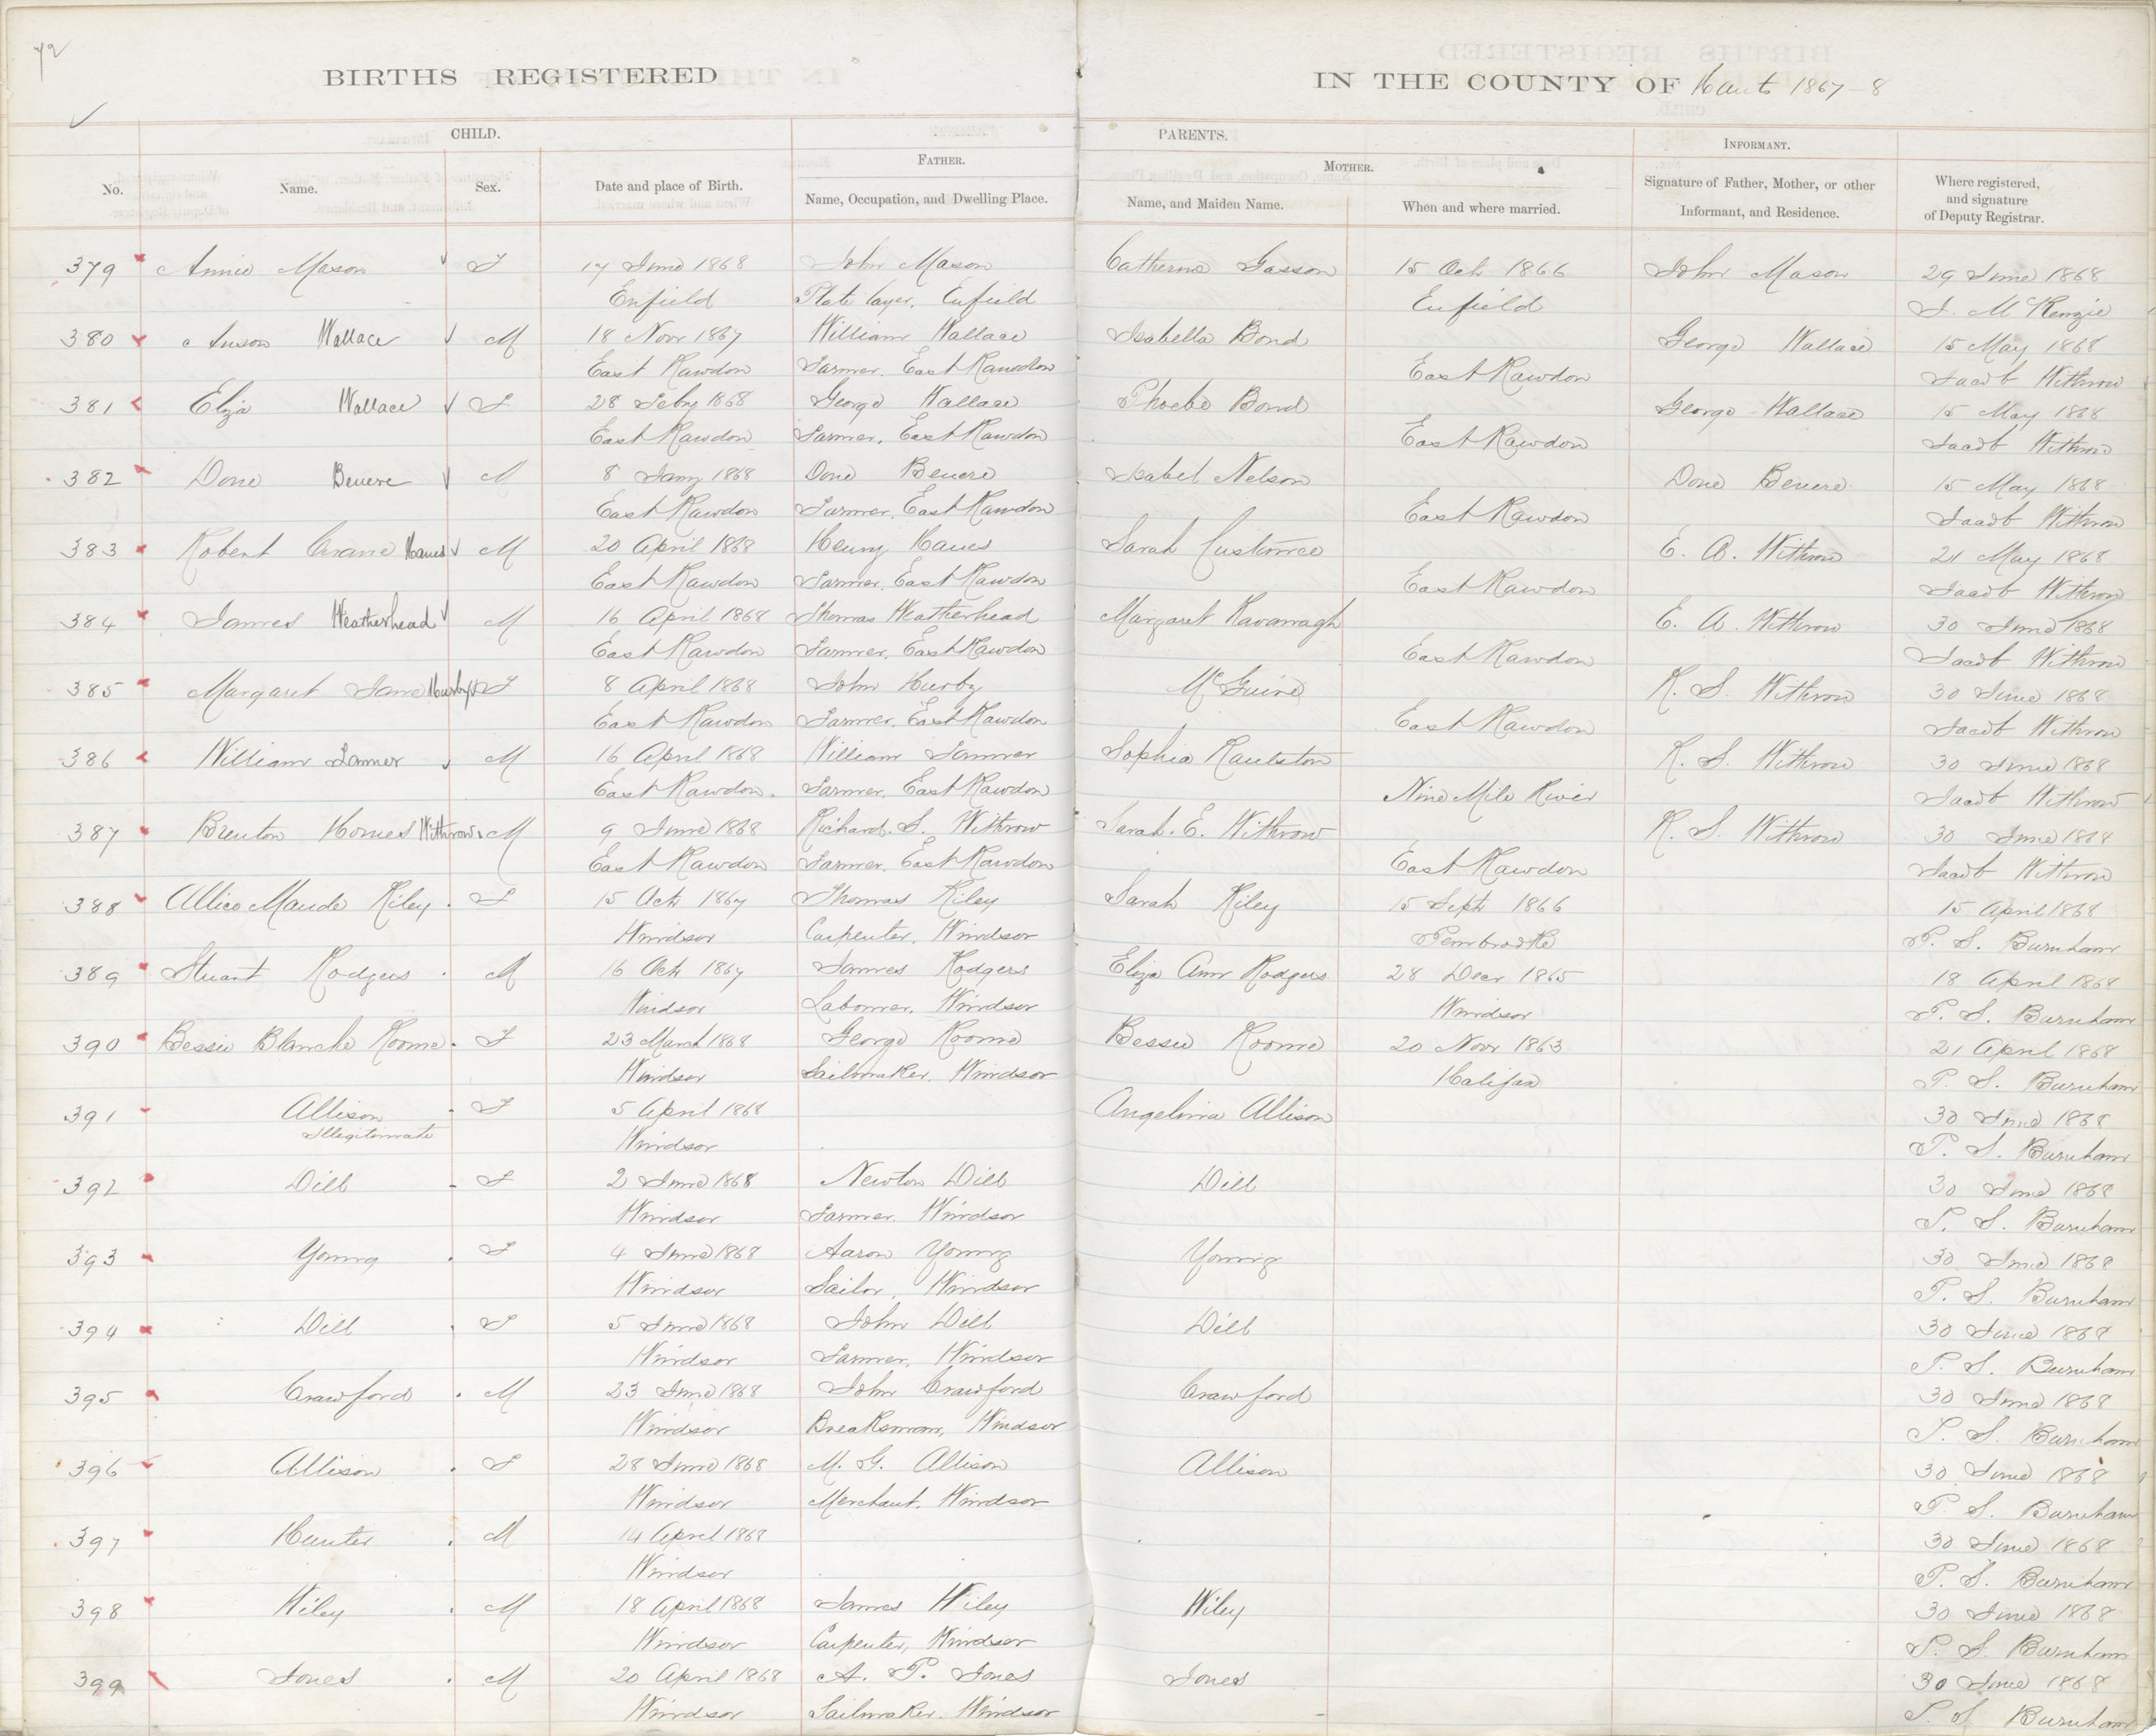 72
BIRTHS REGISTERED IN THE COUNTY OF Hants 1867-8
CHILD. PARENTS. INFORMANT.
FATHER. MOTHER.
No. Name. Sex. Date and place of Birth. Name, Occupation, and Dwelling Place. Name, and Maiden Name. When and where married. Signature of Father, Mother, or other Informant, and Residence. Where registered, and signature of Deputy Registrar.
379 Annie Mason F 17 June 1868 John Mason Catherine Gasson 15 Oct 1866 John Mason 29 June 1868
Enfield Plate layer, Enfield Enfield J. McKenzie
380 Anson Wallace M 18 Novr 1867 William Wallace Isabella Bond George Wallace 15 May 1868
East Rawdon Farmer. East Rawdon East Rawdon Jacob Withrow
381 Eliza Wallace F 28 Feby 1868 George Wallace Phoebe Bond George Wallace 15 May 1868
East Rawdon Farmer. East Rawdon East Rawdon Jacob Withrow
382 Done Benere M 8 Jany 1868 Done Benere Isabel Nelson Done Benere 15 May 1868
East Rawdon Farmer. East Rawdon East Rawdon Jacob Withrow
383 Robert Crane Hanes M 20 April 1868 Henry Hanes Sarah E. A. Withrow 21 May 1868
East Rawdon Farmer. East Rawdon East Rawdon Jacob Withrow
384 James Weatherhead M 16 April 1868 Thomas Weatherhead Margaret Kavanagh E. A. Withrow 30 June 1868
East Rawdon Farmer. East Rawdon East Rawdon Jacob Withrow
385 Margaret Jane Hurby F 8 April 1868 John Hurby McGuire R. S. Withrow 30 June 1868
East Rawdon Farmer. East Rawdon East Rawdon Jacob Withrow
386 William M 16 April 1868 William Sophia Raulston R. S. Withrow 30 June 1868
East Rawdon. Farmer. East Rawdon Nine Mile River Jacob Withrow
387 Brenton Homes Withrow M 9 June 1868 Richard. S. Withrow Sarah. E. Withrow R. S. Withrow 30 June 1868
East Rawdon Farmer. East Rawdon East Rawdon Jacob Withrow
388 Allice Maude Riley F 15 Oct 1867 Thomas Riley Sarah Riley 15 Sept 1866 15 April 1868
Windsor Carpenter, Windsor Pembroke P. S. Burnham
389 Stuart Rodgers M 16 Oct 1867 James Rodgers Eliza Ann Rodgers 28 Decr 1865 18 April 1868
Windsor Labourer. Windsor Windsor P. S. Burnham
390 Bessie Blanche Roome F 23 March 1868 George Roome Bessie Roome 20 Novr 1863 21 April 1868
Windsor Sailmaker. Windsor Halifax P. S. Burnham
391 Allison F 5 April 1868 Angelina Allison 30 June 1868
Illegitimate Windsor P. S. Burnham
392 Dill F 2 June 1868 Newton Dill Dill 30 June 1868
Windsor Farmer. Windsor P. S. Burnham
393 Young F 4 June 1868 Aaron Young Young 30 June 1868
Windsor Sailor, Windsor P. S. Burnham
394 Dill F 5 June 1868 John Dill Dill 30 June 1868
Windsor Farmer, Windsor P. S. Burnham
395 Crawford M 23 June 1868 John Crawford Crawford 30 June 1868
Windsor Breaksman, Windsor P. S. Burnham
396 Allison F 28 June 1868 M. G. Allison Allison 30 June 1868
Windsor Merchant. Windsor P. S. Burnham
397 Hunter M 14 April 1868 30 June 1868
Windsor P. S. Burnham
398 Wiley M 18 April 1868 James Wiley Wiley 30 June 1868
Windsor Carpenter, Windsor P. S. Burnham
399 Jones M 20 April 1868 A. P. Jones Jones 30 June 1868
Windsor Sailmaker. Windsor P. S. Burnham